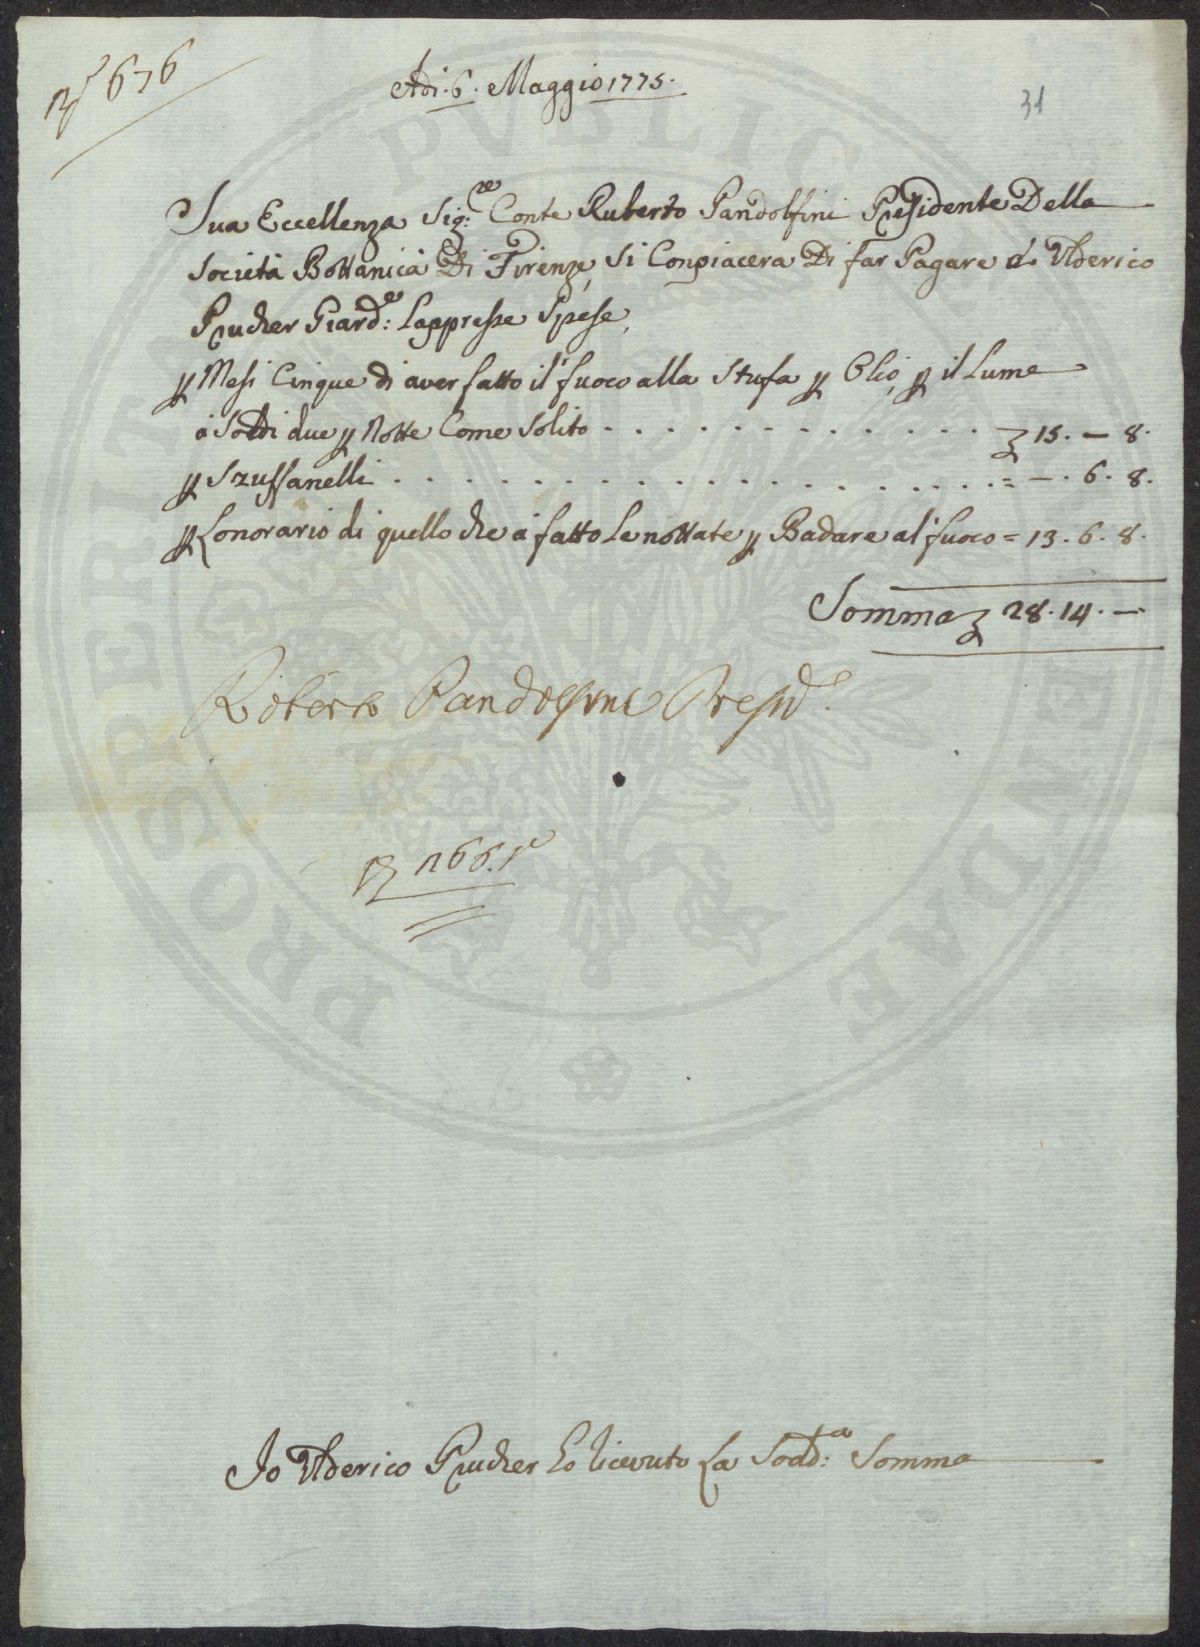 N.° 676
Adi. 6. Maggio 1775.
31
Sua Eccellenza Sig:re Conte Ruberto Pandolfini Presidente Della
Società Bottanica Di Firenze, Si Conpiacera Di far Pagare à Ulderico
Prucher Giard:e Lappresse Spese,
p Mesi Cinque di aver fatto il fuoco alla Stufa p Olio, p il Lume
à Soldi due p Notte Come Solito . . . . . . . . . . . . . £ 15. — 8.
p Szuffanelli . . . . . . . . . . . . . . . . . . . . = —. 6. 8.
p Lonorario di quello che à fatto Le nottate p Badare al fuoco = 13. 6. 8.
Somma £ 28. 14. —
Roberto Pandolfini Presid.
166.
Io Ulderico Prucher ho Ricevuto La Sodd:a Somma
PROSPERITATI PVBLICAE